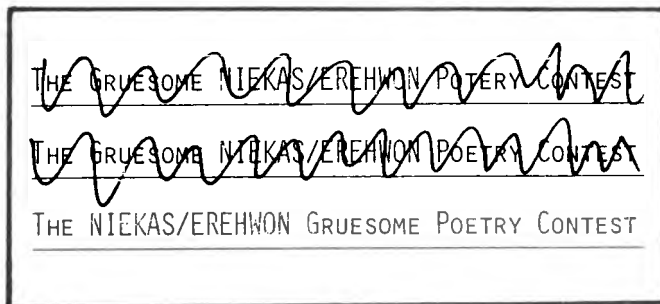 THE GRUESOME NIEKAS/EREHWON POTERY CONTEST
THE GRUESOME NIEKAS/EREHWON POETRY CONTEST
THE NIEKAS/EREHWON GRUESOME POETRY CONTEST